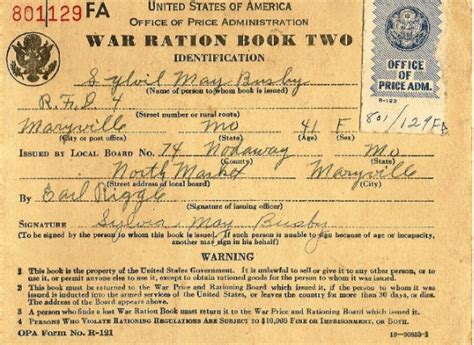 801129 FA
UNITED STATES OF AMERICA
OFFICE OF PRICE ADMINISTRATION
WAR RATION BOOK TWO
IDENTIFICATION
OFFICE
OF
PRICE ADM.
R-122
801/129FA
May Busby
(Name of person to whom book is issued)
R.F.D 4
(Street number or rural route)
Maryville Mo 41 F
(City or post office) (State) (Age) (Sex)
ISSUED BY LOCAL BOARD No. 74 Nodaway Mo
(County) (State)
North Market Maryville
(Street address of local board) (City)
By Earl Riggle
(Signature of issuing officer)
SIGNATURE May Busby
(To be signed by the person to whom this book is issued. If such person is unable to sign because of age or incapacity, another may sign in his behalf)
WARNING
1 This book is the property of the United States Government. It is unlawful to sell or give it to any other person, or to
use it or permit anyone else to use it, except to obtain rationed goods for the person to whom it was issued.
2 This book must be returned to the War Price and Rationing Board which issued it, if the person to whom it was
issued is inducted into the armed services of the United States, or leaves the country for more than 30 days, or dies.
The address of the Board appears above.
3 A person who finds a lost War Ration Book must return it to the War Price and Rationing Board which issued it.
4 PERSONS WHO VIOLATE RATIONING REGULATIONS ARE SUBJECT TO $10,000 FINE OR IMPRISONMENT, OR BOTH.
OPA Form No. R-121